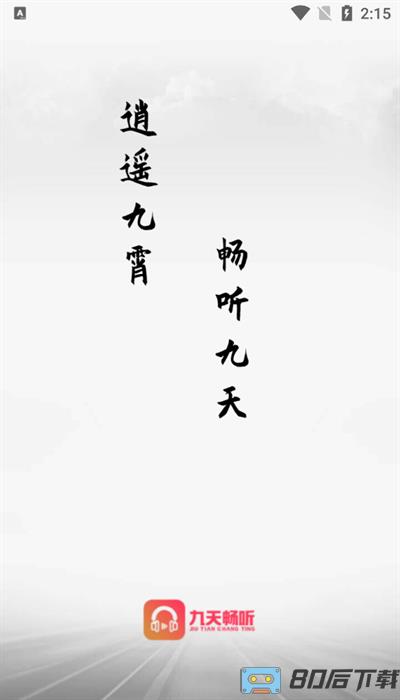 A
2:15
逍遥九霄
畅听九天
九天畅听
JIU TIAN CHANG TING
80后下载